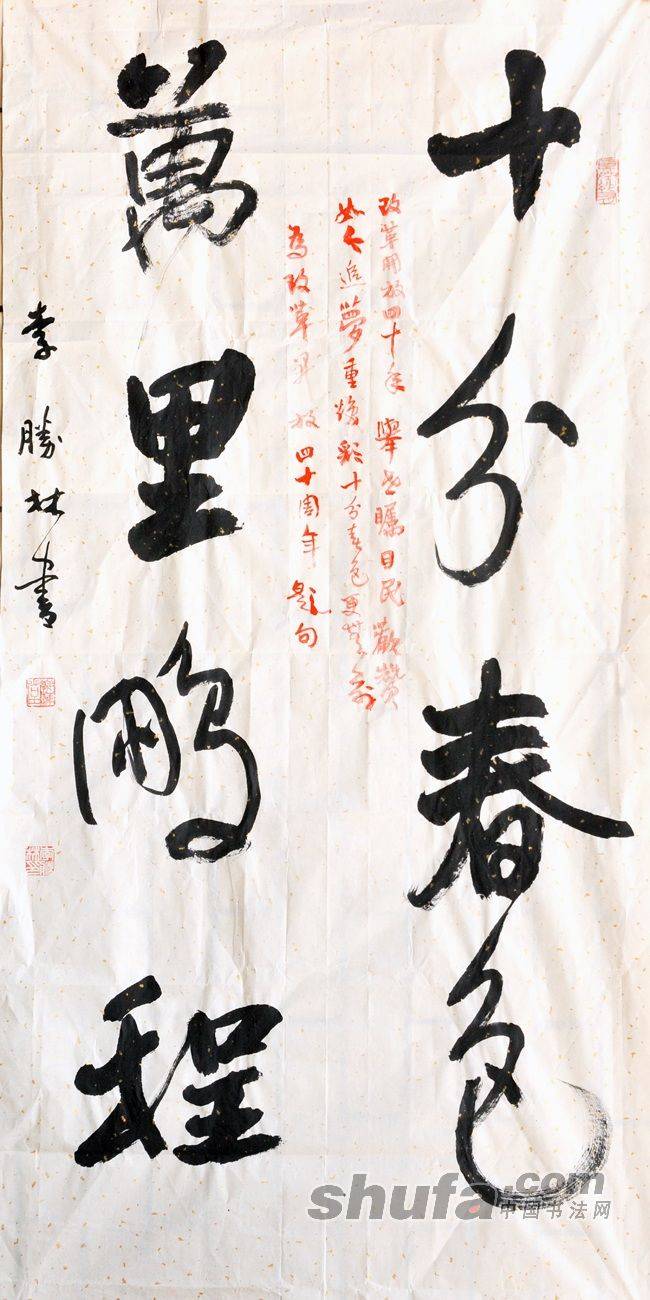 十分春色
改革開放四十年舉世矚目民歡贊
如今追夢重煥彩十分春色更
為改革開放四十周年題句
萬里鵬程
李勝林書
shufa.com
中国书法网